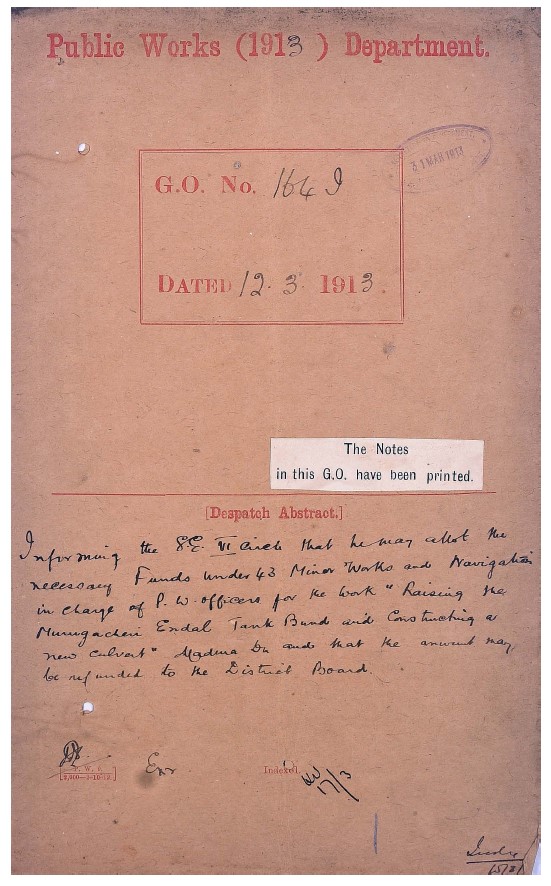 Public Works (1913) Department.
31 MAR 1913
G.O. No. 164 I
DATED 12. 3. 1913.
The Notes
in this G.O. have been printed.
[Despatch Abstract.]
Informing the S.E. VI Circle that he may allot the
necessary Funds under 43 Minor Works and Navigation
in charge of P.W. officers for the work "Raising the
Murugacheri Endal Tank Bund and Constructing a
new culvert" Madura Dn and that the amount may
be refunded to the District Board.
P. W. D.
2,000—3-10-12
Indexed
17/3